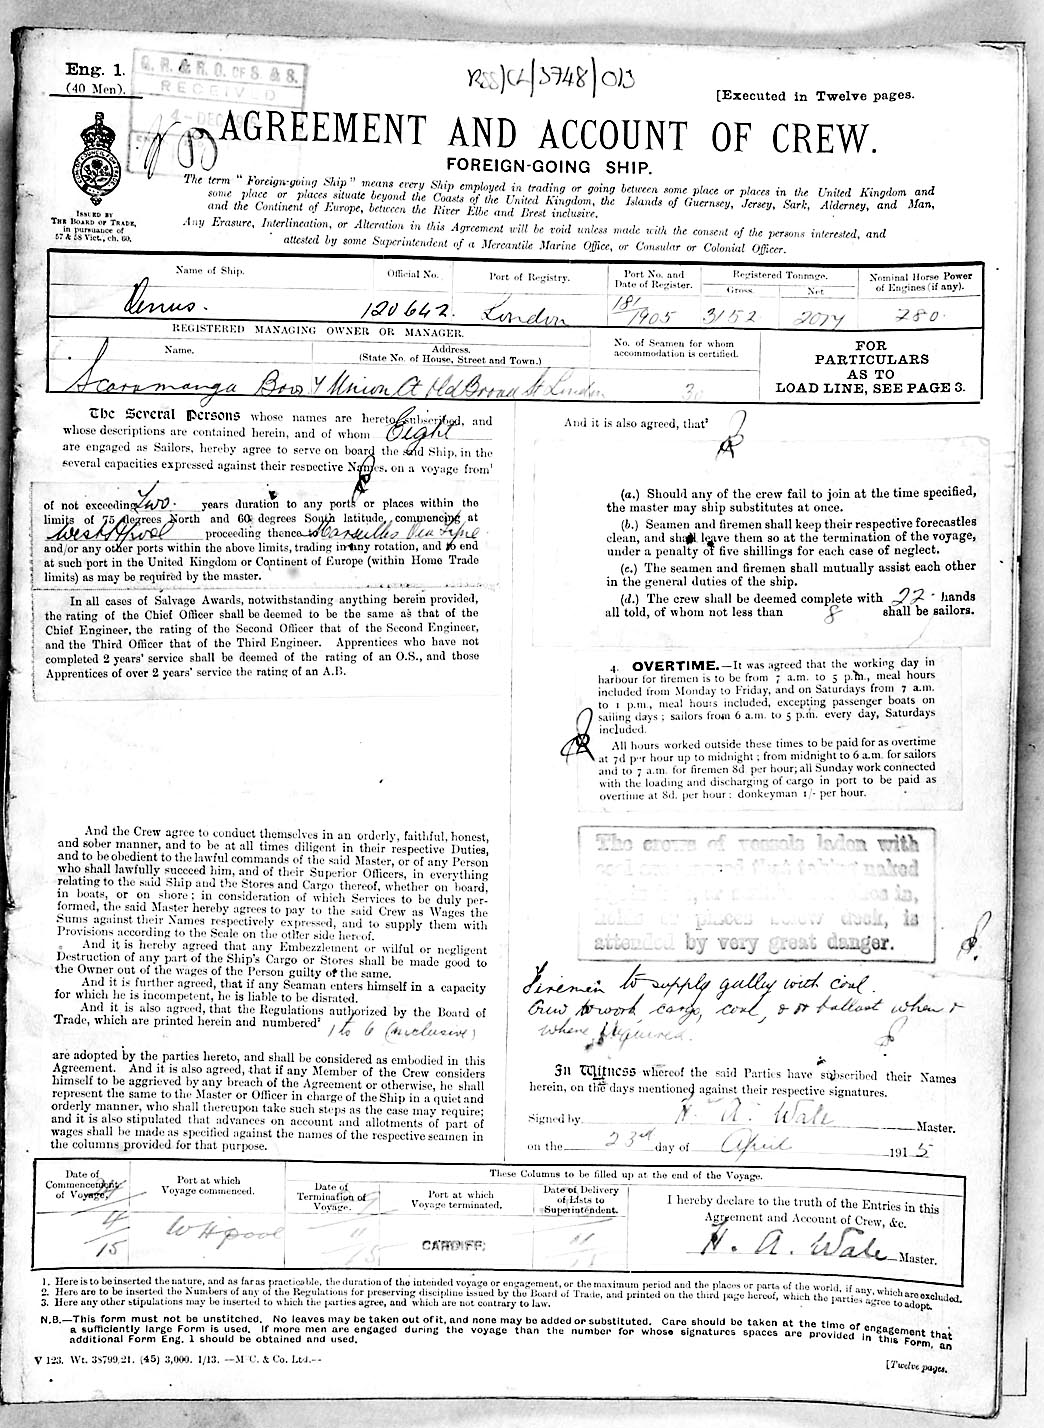 Eng. 1.
(40 Men).
RECEIVED
RSS/CL/3748/013
[Executed in Twelve pages.
AGREEMENT AND ACCOUNT OF CREW.
FOREIGN-GOING SHIP.
The term "Foreign-going Ship" means every Ship employed in trading or going between some place or places in the United Kingdom and
some place or places situate beyond the Coasts of the United Kingdom, the Islands of Guernsey, Jersey, Sark, Alderney, and Man,
and the Continent of Europe, between the River Elbe and Brest inclusive.
Any Erasure, Interlineation, or Alteration in this Agreement will be void unless made with the consent of the persons interested, and
attested by some Superintendent of a Mercantile Marine Office, or Consular or Colonial Officer.
ISSUED BY
THE BOARD OF TRADE,
in pursuance of
57 & 58 Vict., ch. 60.
Name of Ship. Official No. Port of Registry. Port No. and Date of Register. Registered Tonnage. Gross. Net. Nominal Horse Power of Engines (if any).
Venus. 120642. London 181/1905 3152 2017 280
REGISTERED MANAGING OWNER OR MANAGER.
Name. Address. (State No. of House, Street and Town.)
No. of Seamen for whom accommodation is certified.
Scaramanga Bros 7 Union Ct Old Broad St London 30
FOR
PARTICULARS
AS TO
LOAD LINE, SEE PAGE 3.
The Several Persons whose names are hereto subscribed, and
whose descriptions are contained herein, and of whom Eight
are engaged as Sailors, hereby agree to serve on board the said Ship, in the
several capacities expressed against their respective Names, on a voyage from¹
of not exceeding Two years duration to any ports or places within the
limits of 75 degrees North and 60 degrees South latitude, commencing at
West Hpool proceeding thence Marseilles via Tyne
and/or any other ports within the above limits, trading in any rotation, and to end
at such port in the United Kingdom or Continent of Europe (within Home Trade
limits) as may be required by the master.
In all cases of Salvage Awards, notwithstanding anything herein provided,
the rating of the Chief Officer shall be deemed to be the same as that of the
Chief Engineer, the rating of the Second Officer that of the Second Engineer,
and the Third Officer that of the Third Engineer. Apprentices who have not
completed 2 years' service shall be deemed of the rating of an O.S., and those
Apprentices of over 2 years' service the rating of an A.B.
And the Crew agree to conduct themselves in an orderly, faithful, honest,
and sober manner, and to be at all times diligent in their respective Duties,
and to be obedient to the lawful commands of the said Master, or of any Person
who shall lawfully succeed him, and of their Superior Officers, in everything
relating to the said Ship and the Stores and Cargo thereof, whether on board,
in boats, or on shore; in consideration of which Services to be duly per-
formed, the said Master hereby agrees to pay to the said Crew as Wages the
Sums against their Names respectively expressed, and to supply them with
Provisions according to the Scale on the other side hereof.
And it is hereby agreed that any Embezzlement or wilful or negligent
Destruction of any part of the Ship's Cargo or Stores shall be made good to
the Owner out of the wages of the Person guilty of the same.
And it is further agreed, that if any Seaman enters himself in a capacity
for which he is incompetent, he is liable to be disrated.
And it is also agreed, that the Regulations authorized by the Board of
Trade, which are printed herein and numbered² 1 to 6 (inclusive)
are adopted by the parties hereto, and shall be considered as embodied in this
Agreement. And it is also agreed, that if any Member of the Crew considers
himself to be aggrieved by any breach of the Agreement or otherwise, he shall
represent the same to the Master or Officer in charge of the Ship in a quiet and
orderly manner, who shall thereupon take such steps as the case may require;
and it is also stipulated that advances on account and allotments of part of
wages shall be made as specified against the names of the respective seamen in
the columns provided for that purpose.
And it is also agreed, that³
(a.) Should any of the crew fail to join at the time specified,
the master may ship substitutes at once.
(b.) Seamen and firemen shall keep their respective forecastles
clean, and shall leave them so at the termination of the voyage,
under a penalty of five shillings for each case of neglect.
(c.) The seamen and firemen shall mutually assist each other
in the general duties of the ship.
(d.) The crew shall be deemed complete with 22 hands
all told, of whom not less than 8 shall be sailors.
4. OVERTIME.—It was agreed that the working day in
harbour for firemen is to be from 7 a.m. to 5 p.m., meal hours
included from Monday to Friday, and on Saturdays from 7 a.m.
to 1 p.m., meal hours included, excepting passenger boats on
sailing days; sailors from 6 a.m. to 5 p.m. every day, Saturdays
included.
All hours worked outside these times to be paid for as overtime
at 7d per hour up to midnight; from midnight to 6 a.m. for sailors
and to 7 a.m. for firemen 8d per hour; all Sunday work connected
with the loading and discharging of cargo in port to be paid as
overtime at 8d. per hour: donkeyman 1/- per hour.
The crews of vessels laden with
coal are warned that taking naked
attended by very great danger.
Firemen to supply galley with coal.
Crew to work cargo, coal, & or ballast when &
where required.
In Witness whereof the said Parties have subscribed their Names
herein, on the days mentioned against their respective signatures.
Signed by H. A. Wale Master.
on the 23rd day of April 1915
Date of Commencement of Voyage. Port at which Voyage commenced. These Columns to be filled up at the end of the Voyage.
Date of Termination of Voyage. Port at which Voyage terminated. Date of Delivery of Lists to Superintendent.
I hereby declare to the truth of the Entries in this
Agreement and Account of Crew, &c.
4/15 W Hpool 11/15 CARDIFF. H. A. Wale Master.
1. Here is to be inserted the nature, and as far as practicable, the duration of the intended voyage or engagement, or the maximum period and the places or parts of the world, if any, which are excluded.
2. Here are to be inserted the Numbers of any of the Regulations for preserving discipline issued by the Board of Trade, and printed on the third page hereof, which the parties agree to adopt.
3. Here any other stipulations may be inserted to which the parties agree, and which are not contrary to law.
N.B.—This form must not be unstitched. No leaves may be taken out of it, and none may be added or substituted. Care should be taken at the time of engagement that
a sufficiently large Form is used. If more men are engaged during the voyage than the number for whose signatures spaces are provided in this Form, an
additional Form Eng. 1 should be obtained and used.
V 123. Wt. 38799.21. (45) 3,000. 1/13. —M C. & Co. Ltd.—
[Twelve pages.